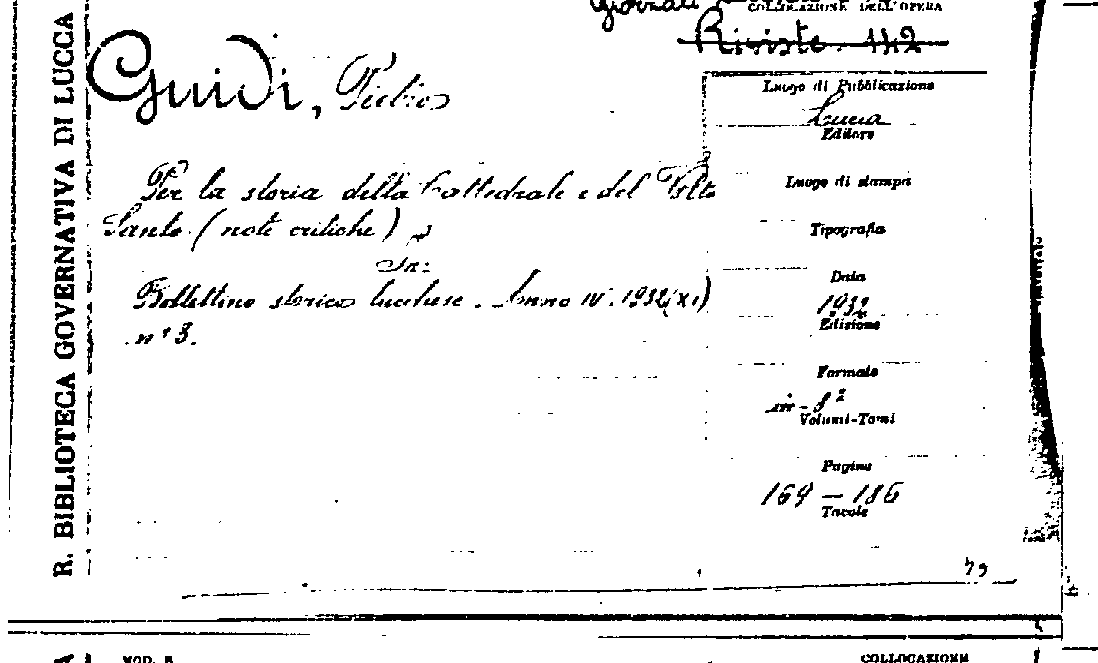 Giornali
COLLOCAZIONE DELL'OPERA
Riviste. 142
R. BIBLIOTECA GOVERNATIVA DI LUCCA
Guidi, Pietro
Per la storia della Cattedrale e del Volto
Santo. (note critiche)
In:
Bollettino storico lucchese. Anno IV. 1932 (XI)
n° 3.
Luogo di Pubblicazione
Lucca
Editore
Luogo di stampa
Tipografia
Data
1932
Edizione
Formato
in-8°
Volumi-Tomi
Pagine
169 — 186
Tavole
MOD. 
COLLOCAZIONE